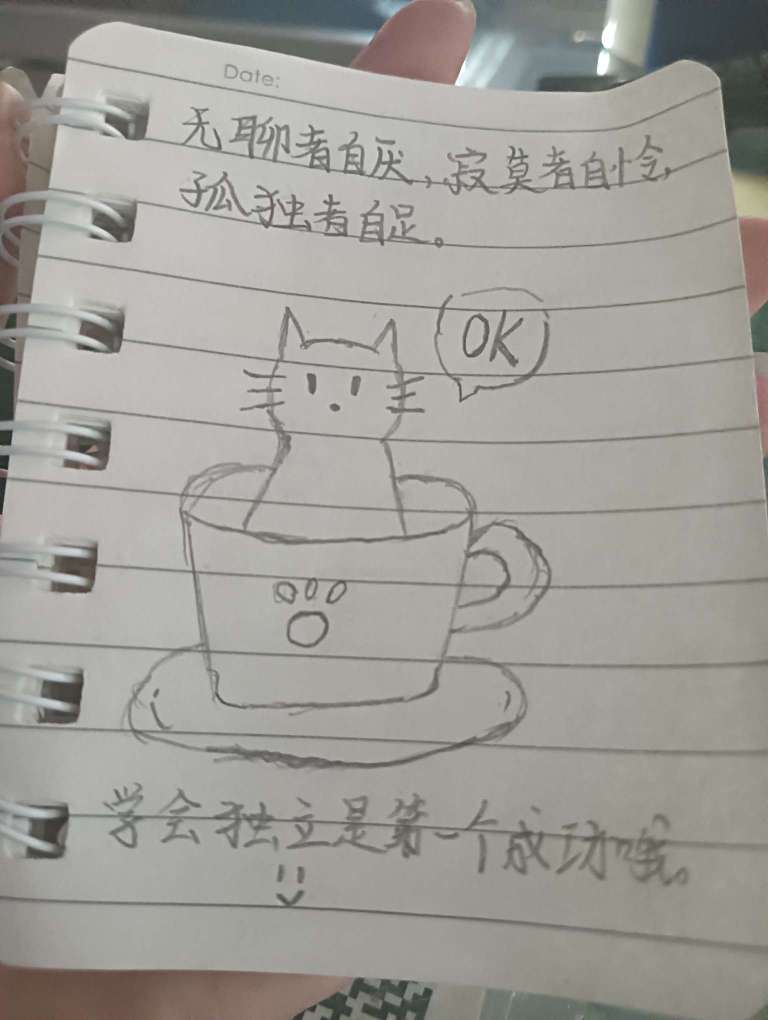 Date:
无聊者自厌，寂莫者自怜，
孤独者自足。
OK
学会独立是第一个成功哦。